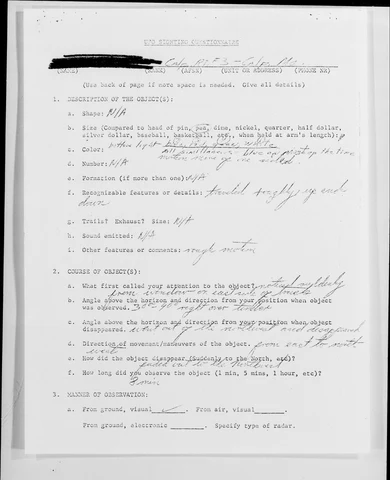 UFO SIGHTING QUESTIONNAIRE
(DATE) (NAME) (AFSC) (UNIT OR ADDRESS) (PHONE NR)
(Use back of page if more space is needed. Give all details)
1. DESCRIPTION OF THE OBJECT(S):
a. Shape: N/A
b. Size (Compared to head of pin, pea, dime, nickel, quarter, half dollar,
silver dollar, baseball, basketball, etc., when held at arm's length):
c. Color:
d. Number: N/A
e. Formation (if more than one): N/A
f. Recognizable features or details: traveled roughly, up and
down
g. Trails? Exhaust? Size: N/A
h. Sound emitted: N/A
i. Other features or comments: rough motion
2. COURSE OF OBJECT(S):
a. What first called your attention to the object?
b. Angle above the horizon and direction from your position when object
was observed.
c. Angle above the horizon and direction from your position when object
disappeared. and disappeared
d. Direction of movement/maneuvers of the object. from east to north
west
e. How did the object disappear (Suddenly to the North, etc)?
f. How long did you observe the object (1 min, 5 mins, 1 hour, etc)?
3 min
3. MANNER OF OBSERVATION:
a. From ground, visual ✓. From air, visual
From ground, electronic . Specify type of radar.